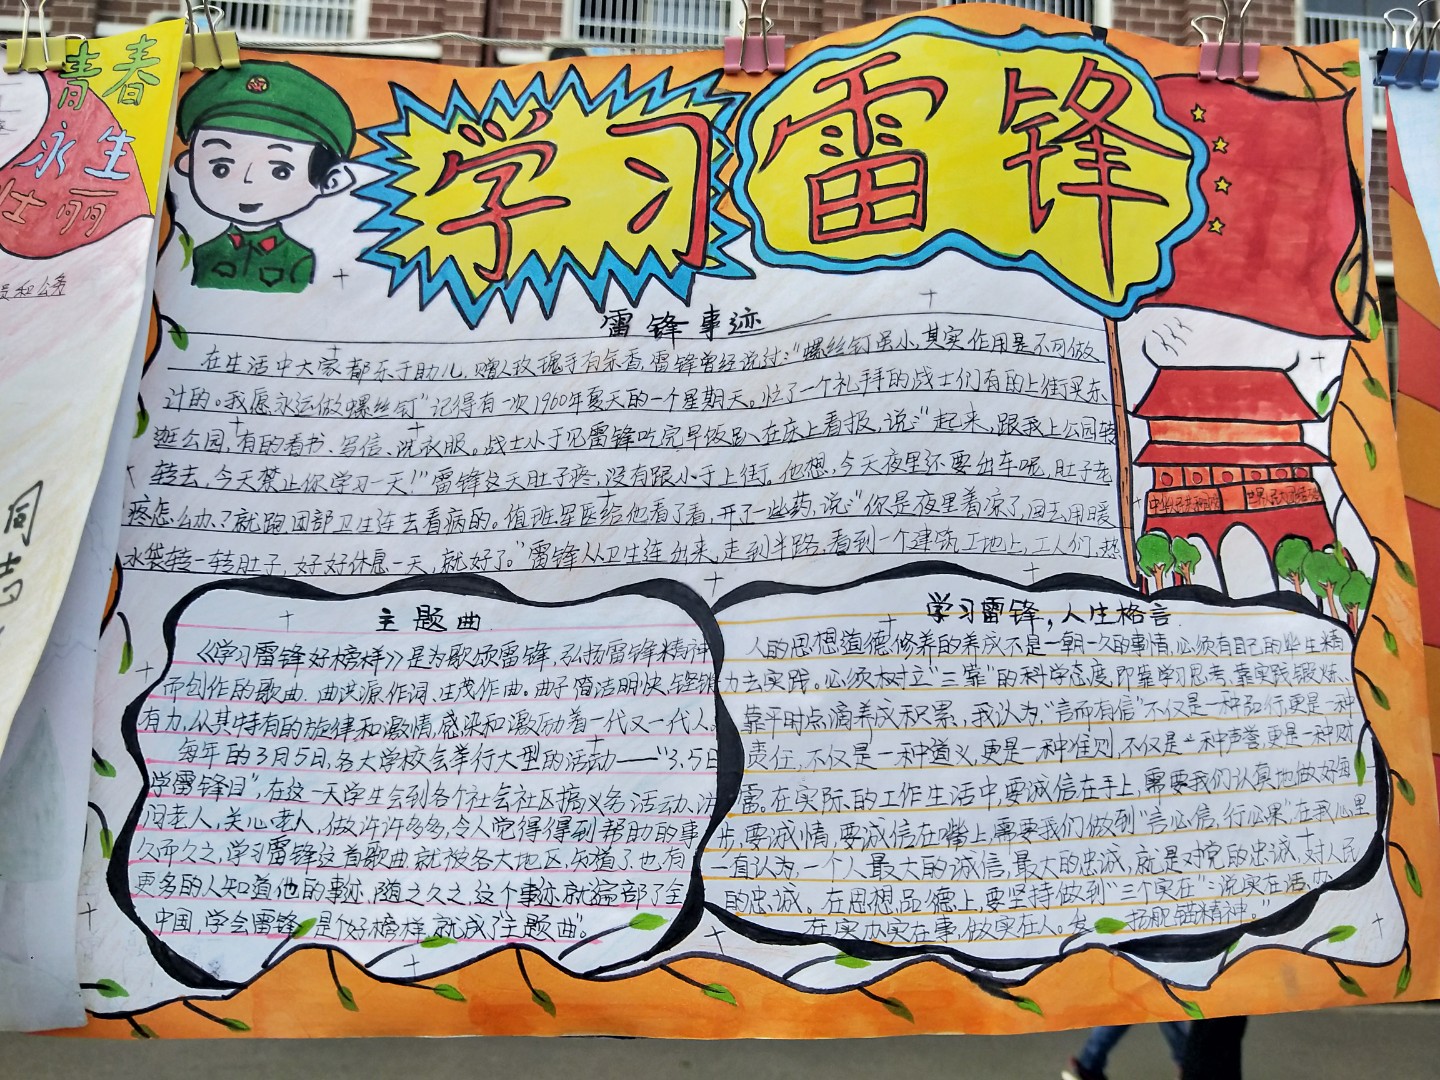 青春
永生
壮丽
学习
雷锋
雷锋事迹
在生活中大家都乐于助儿,赠人玫瑰手有余香,雷锋曾经说过:"螺丝钉虽小,其实作用是不可做
计的。我愿永远做螺丝钉"记得有一次1960年夏天的一个星期天。忙了一个礼拜的战士们有的上街买东,
逛公园,有的看书、写信、洗衣服。战士小于见雷锋吃完早饭趴在床上看报,说:"起来,跟我上公园转
转去,今天禁止你学习一天!"雷锋这天肚子疼,没有跟小于上街。他想,今天夜里还要出车呢,肚子老
疼怎么办?就跑团部卫生连去看病的。值班军医给他看了看,开了一些药,说:"你是夜里着凉了,回去用暖
水袋转一转肚子,好好休息一天,就好了。"雷锋从卫生连出来,走到半路,看到一个建筑工地上,工人们,热
主题曲
《学习雷锋好榜样》是为歌颂雷锋,弘扬雷锋精神
而创作的歌曲,由洪源作词,生茂作曲。曲子简洁明快,铿锵
有力,从其中特有的旋律和激情,感染和激励着一代又一代人、
每年的3月5日,各大学校会举行大型的活动——"3.5日
学雷锋日",在这一天学生会到各个社会社区搞义务活动、访
问老人,关心老人,做许许多多,令人觉得得到帮助的事
久而久之,学习雷锋这首歌曲就被各大地区,知道了也,有
更多的人知道他的事迹,随之久之,这个事迹就遍部了全
中国,学会雷锋,是个好榜样,就成了"主题曲"。
学习雷锋,人生格言
人的思想道德修养的养成不是一朝一夕的事情,必须有自己的毕生精
力去实践。必须树立"三靠"的科学态度,即靠学习思考,靠实践锻炼、
靠平时点滴养成积累、我认为,"言而有信"不仅是一种品行,更是一种
责任,不仅是一种道义,更是一种准则,不仅是一种声誉,更是一种财
富。在实际的工作生活中,要诚信在手上,需要我们认真地做好每
步,要诚情,要诚信在嘴上,需要我们做到"言必信,行必果",在我心里
一直认为,一个人最大的诚信,最大的忠诚,就是对党的忠诚,对人民
的忠诚。在思想品德上,要坚持做到"三个实在":说实在话、办
在实办实在事,做实在人。发扬舵锚精神。"